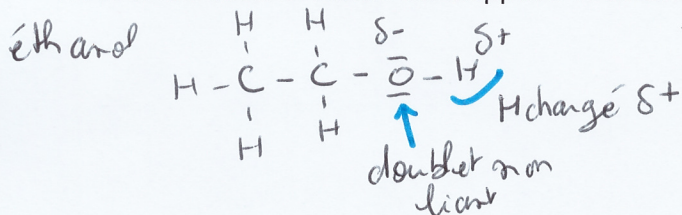 éthanol
H H δ- δ+
H - C - C - O - H
H H
H chargé δ+
doublet non
liant